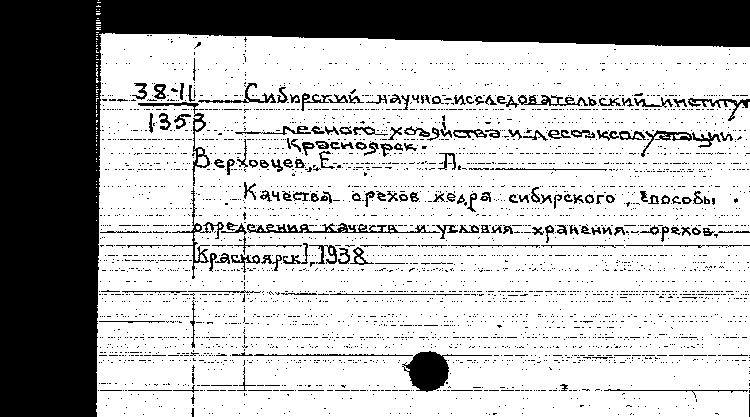 38-11 Сибирский научно-исследовательский институт
1353 лесного хозяйства и лесоэксплуатации.
Красноярск.
Верховцев, Е. П.
Качества орехов кедра сибирского, способы
определения качеств и условия хранения орехов.
[Красноярск], 1938